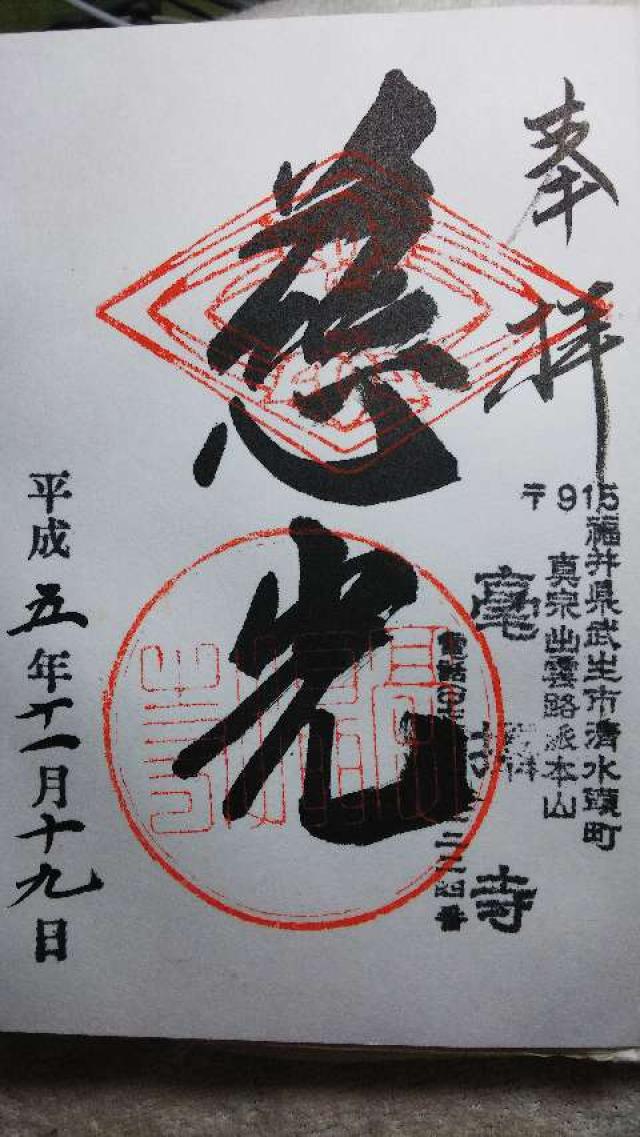 奉拝
〒915福井県武生市清水頭町
真宗出雲路派本山
毫摂寺
慈光
平成五年十一月十九日